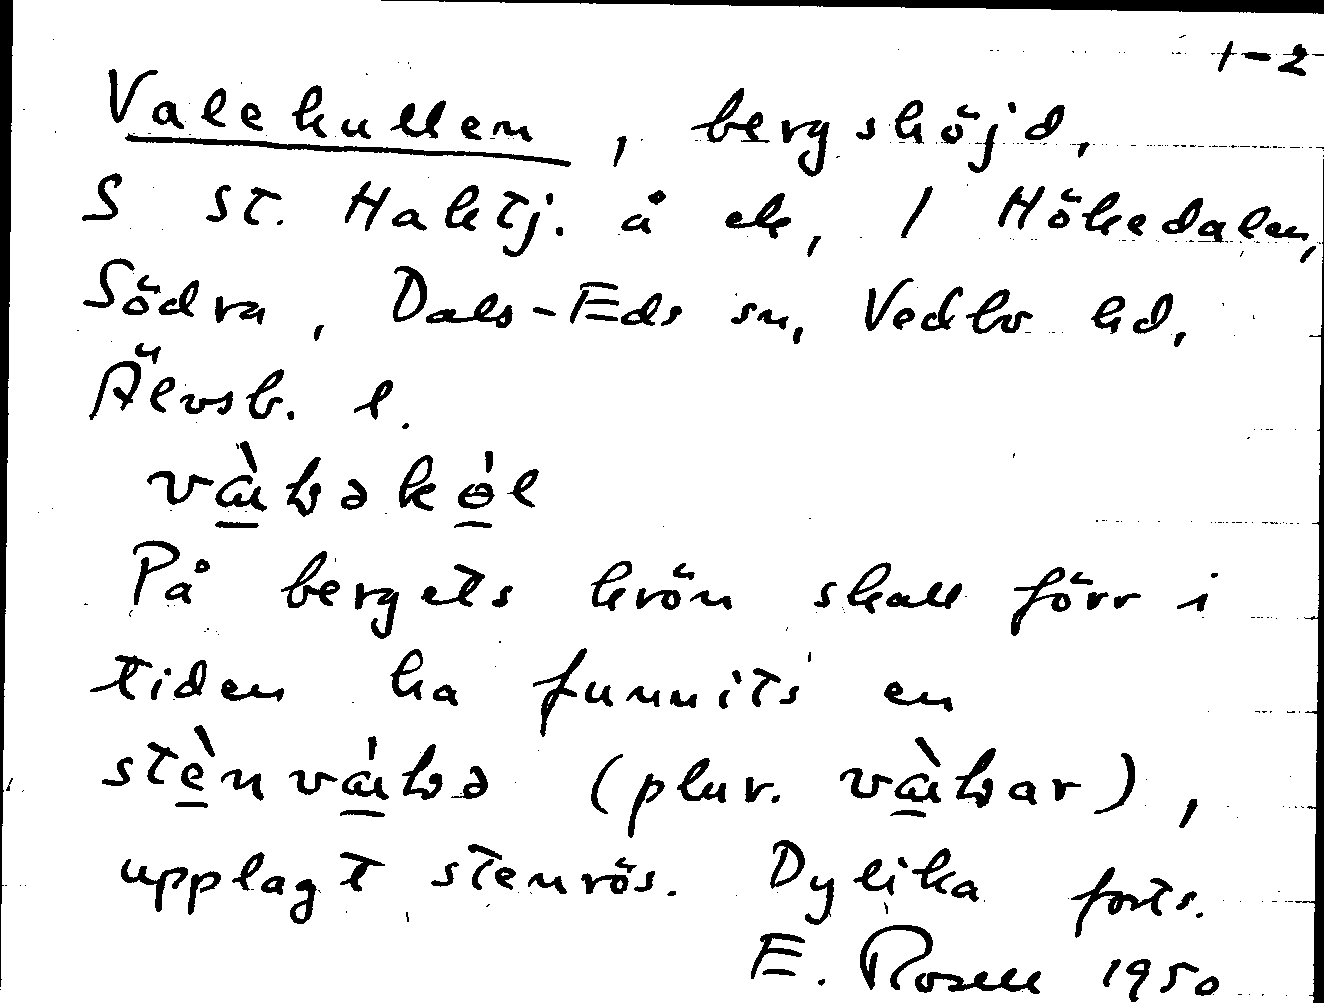 1-2
Valekullen, bergshöjd,
S St. Haktj. å ek, / Hökedalen,
Södra, Dals-Eds sn, Vedbo hd,
Älvsb. l.
På bergets krön skall förr i
tiden ha funnits en
(plur.
upplagt stenrös. Dylika forts.
E. Rosell 1950